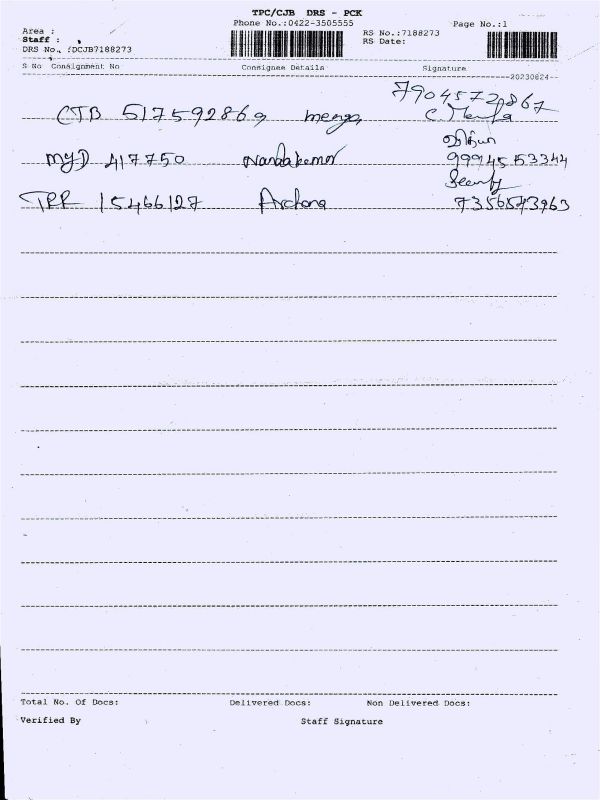 TPC/CJB DRS - PCK
Phone No.:0422-3505555 Page No.:1
Area :
Staff :
RS No.:7188273
RS Date:
DRS No. :DCJB7188273
S No Consignment No Consignee Details Signature
20230824
7904572867
CTB 517592869
MYD 417750 Nandakumar 9994553344
Security
TRR 15466127 Archana 7356543963
Total No. Of Docs: Delivered Docs: Non Delivered Docs:
Verified By Staff Signature